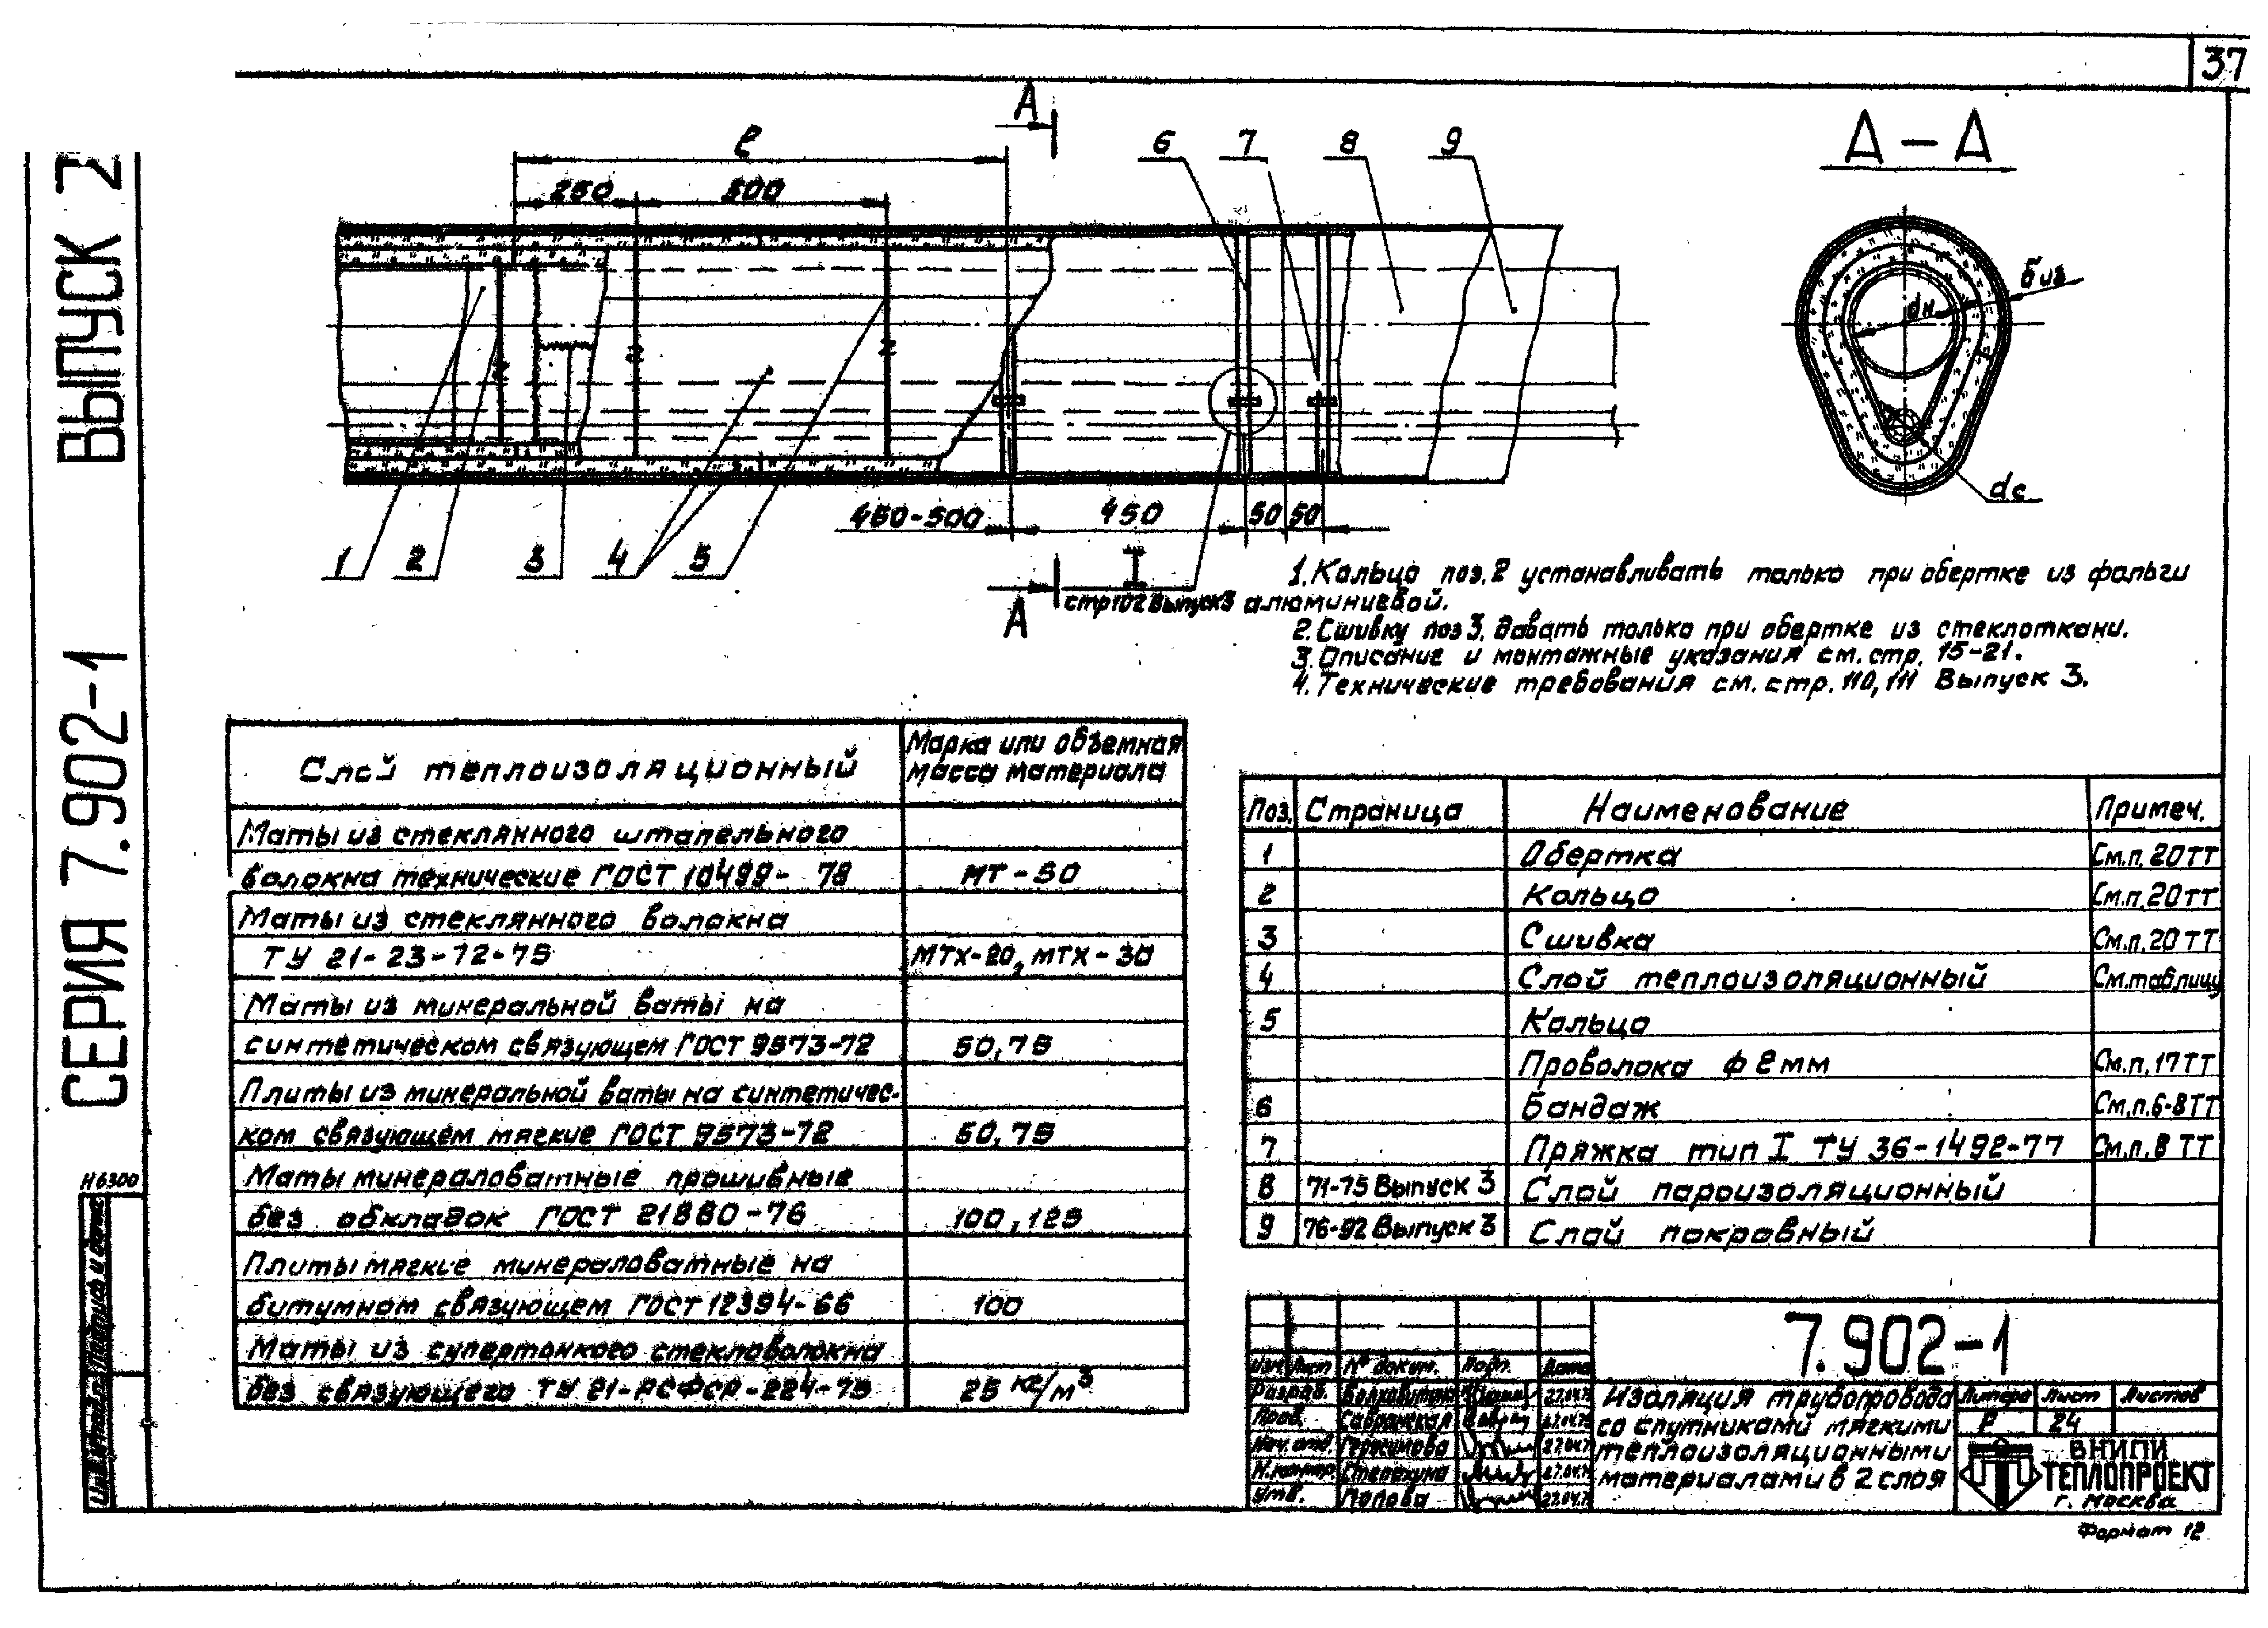 37
СЕРИЯ 7.902-1 ВЫПУСК 2
А
ℓ
250
500
6
7
8
9
А - А
bиз
dн
dс
450-500
450
50
50
1
2
3
4
5
I
стр 102 Выпуск 3
А
1. Кольцо поз. 2 устанавливать только при обертке из фольги
алюминиевой.
2. Сшивку поз 3. давать только при обертке из стеклоткани.
3. Описание и монтажные указания см. стр. 15-21.
4. Технические требования см. стр. 110, 111 Выпуск 3.
Слой теплоизоляционный
Марка или объемная
масса материала
Маты из стеклянного штапельного
волокна технические ГОСТ 10499- 78 МТ-50
Маты из стеклянного волокна
ТУ 21-23-72-75 МТХ-20, МТХ-30
Маты из минеральной ваты на
синтетическом связующем ГОСТ 9573-72 50, 75
Плиты из минеральной ваты на синтетичес-
ком связующем мягкие ГОСТ 9573-72 50, 75
Маты минераловатные прошивные
без обкладок ГОСТ 21880-76 100, 125
Плиты мягкие минераловатные на
битумном связующем ГОСТ 12394-66 100
Маты из супертонкого стекловолокна
без связующего ТУ 21-РСФСР-224-75 25 кг/м³
Поз. Страница Наименование Примеч.
1 Обертка См.п. 20 ТТ
2 Кольцо См.п. 20 ТТ
3 Сшивка См.п. 20 ТТ
4 Слой теплоизоляционный См.таблицу
5 Кольцо
Проволока ф 2 мм См.п. 17 ТТ
6 Бандаж См.п. 6-8 ТТ
7 Пряжка тип I ТУ 36-1492-77 См.п. 8 ТТ
8 71-75 Выпуск 3 Слой пароизоляционный
9 76-92 Выпуск 3 Слой покровный
Н6300
Подпись и дата
7.902-1
Изм. Лист № докум. Подп. Дата
Разраб.
Пров. Савранская
Нач. отд. Герасимова
Н. контр.
Утв. Попова
Изоляция трубопровода
со спутниками мягкими
теплоизоляционными
материалами в 2 слоя
Литера Лист Листов
Р 24
ВНИПИ
ТЕПЛОПРОЕКТ
г. Москва
Формат 12